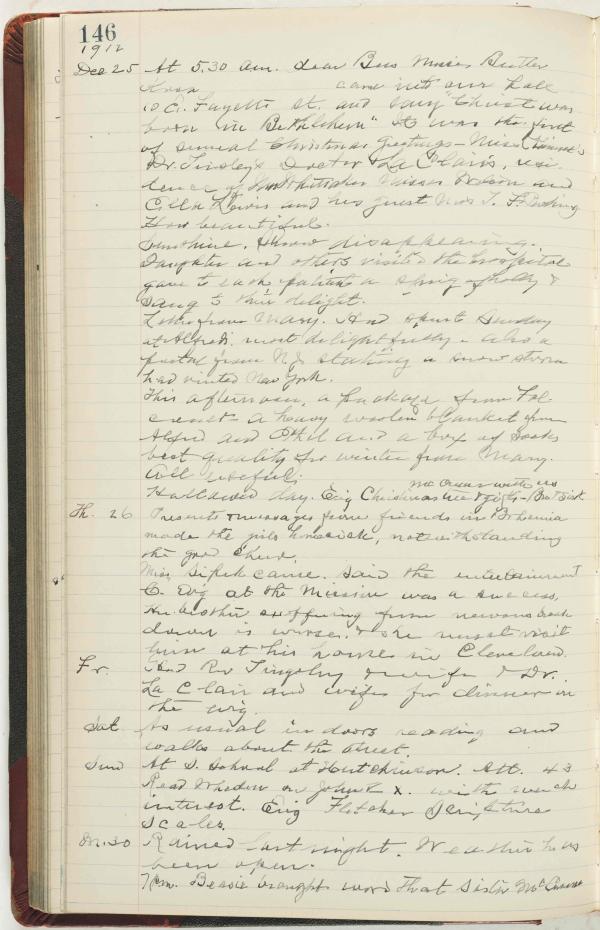 146
1912
Dec 25 At 5.30 am. dear Bros Misses Butler
came into our hall
10 A. Fayette St. and sang "Christ was
born in Bethlehem" It was the first
of several Christmas greetings - Miss
Dr. Tinsley's Doctor La Clair's, resi
dence of Whittaker Misses and
Cilla Lewis and his guest Mrs
How beautiful.
Sunshine. Snow disappearing.
Daughter and others visited the hospital
gave to each patient a sprig of holly &
sang to their delight.
Letter from Mary. Had spent Sunday
at Alfred's most delightfully - also a
postal from N.J. stating a snow storm
had visited New York.
This afternoon, a package from Tol-
- a heavy woolen blanket from
Alfred and Ethel and a box of socks
best quality for winter from Mary.
All useful.
no with us
Hallowed day. Evg Christmas tree & gifts - Bro & Sist
Th. 26 Presents & messages from friends in Bohemia
made the girls homesick, notwithstanding
the good cheer.
Miss came. Said the entertainment
C. Evg at the Mission was a success,
Her brother suffering from nervous break
down is worse. & she must visit
him at his home in Cleveland.
Fr. Had Rev Tinsley & wife & Dr.
La Clair and wife for dinner in
the evg.
Sat As usual in doors reading and
walks about the street.
Sund At S. School at Hutchinson. Att. 43
Read Whedon on John X. with much
interest. Evg Fletcher Scripture
Scales.
M. 30 Rained last night. Weather has
been open.
7 pm. Bessie brought word that Sister